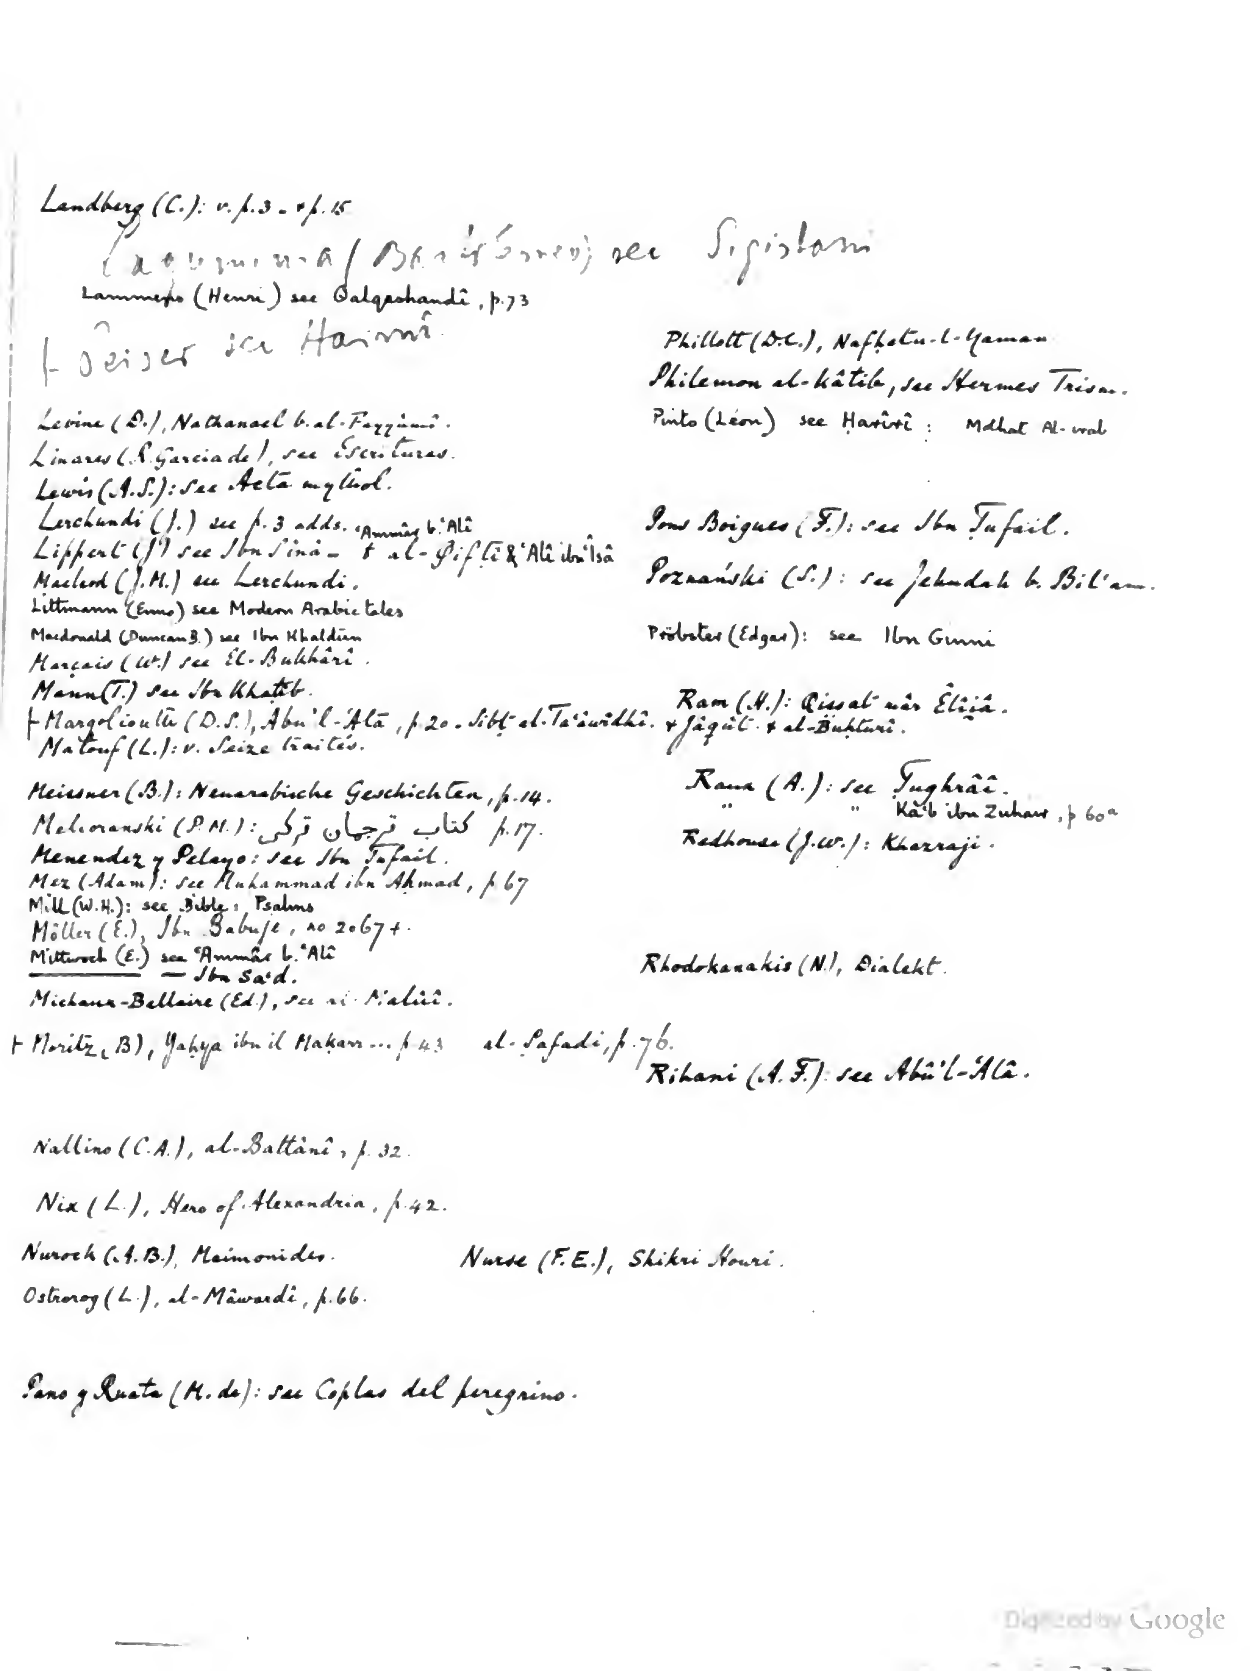 Landberg (C.): v. p. 3 - + p. 15
see Sigistani
Lammens (Henri) see Qalqashandî, p. 73
see
Levine (D.), Nathanael b. al-Fayyûmî.
Linares (R. Garcia de), see Escrituras.
Lewis (A.S.): see Acta mythol.
Lerchundi (J.) see p. 3 adds. ‘Ammâr b. ‘Alî
Lippert (J.) see Ibn Sînâ - + al-Qifṭî & ‘Alî ibn ‘Îsâ
Macleod (J.M.) see Lerchundi.
Littmann (Enno) see Modern Arabic tales
Macdonald (Duncan B.) see Ibn Khaldûn
Marçais (W.) see El-Bukhârî.
Mann (T.) see Ibn Khaṭîb.
+ Margoliouth (D.S.), Abu'l-‘Alâ, p. 20 - Sibṭ al-Ta‘âwîdhî. + Jâqût + al-Buḥturî.
Matouf (L.): v. Seize traités.
Meissner (B.): Neuarabische Geschichten, p. 14.
Melioranski (P.M.): كتاب ترجمان تركى p. 17.
Menendez y Pelayo: see Ibn Tufail.
Mez (Adam): see Muhammad ibn Aḥmad, p. 67
Mill (W.H.): see Bible: Psalms
Möller (E.), Ibn Babuje, no 2067 +.
Mittwoch (E.) see ‘Ammâr b. ‘Alî
— Ibn Sa‘d.
Michaux-Bellaire (Ed.), see
+ Moritz (B), Yaḥya ibn il Maḳarr... p. 43 al-Ṣafadi, p. 76.
Nallino (C.A.), al-Battânî, p. 32.
Nix (L.), Hero of Alexandria, p. 42.
Nurock (A.B.), Maimonides.
Nurse (F.E.), Shikri Houri.
Ostrorog (L.), al-Mâwardî, p. 66.
Pano y Ruata (M. de): see Coplas del peregrino.
Phillott (D.C.), Nafḥatu-l-Yaman
Philemon al-Kâtib, see Hermes Trism.
Pinto (Léon) see Ḥarîrî: Molhat Al-irab
Pons Boigues (F.): see Ibn Ṭufail.
Poznański (S.): see Jehudah b. Bil‘am.
Pröbster (Edgar): see Ibn Ginni
Ram (H.): Qissat mâr Êlîjâ.
Raux (A.): see Ṭughrâî.
" " Ka‘b ibn Zuhair, p 60ª
Redhouse (J.W.): Khazraji.
Rhodokanakis (N.), Dialekt.
Rihani (A.F.): see Abû'l-‘Alâ.
Digitized by Google